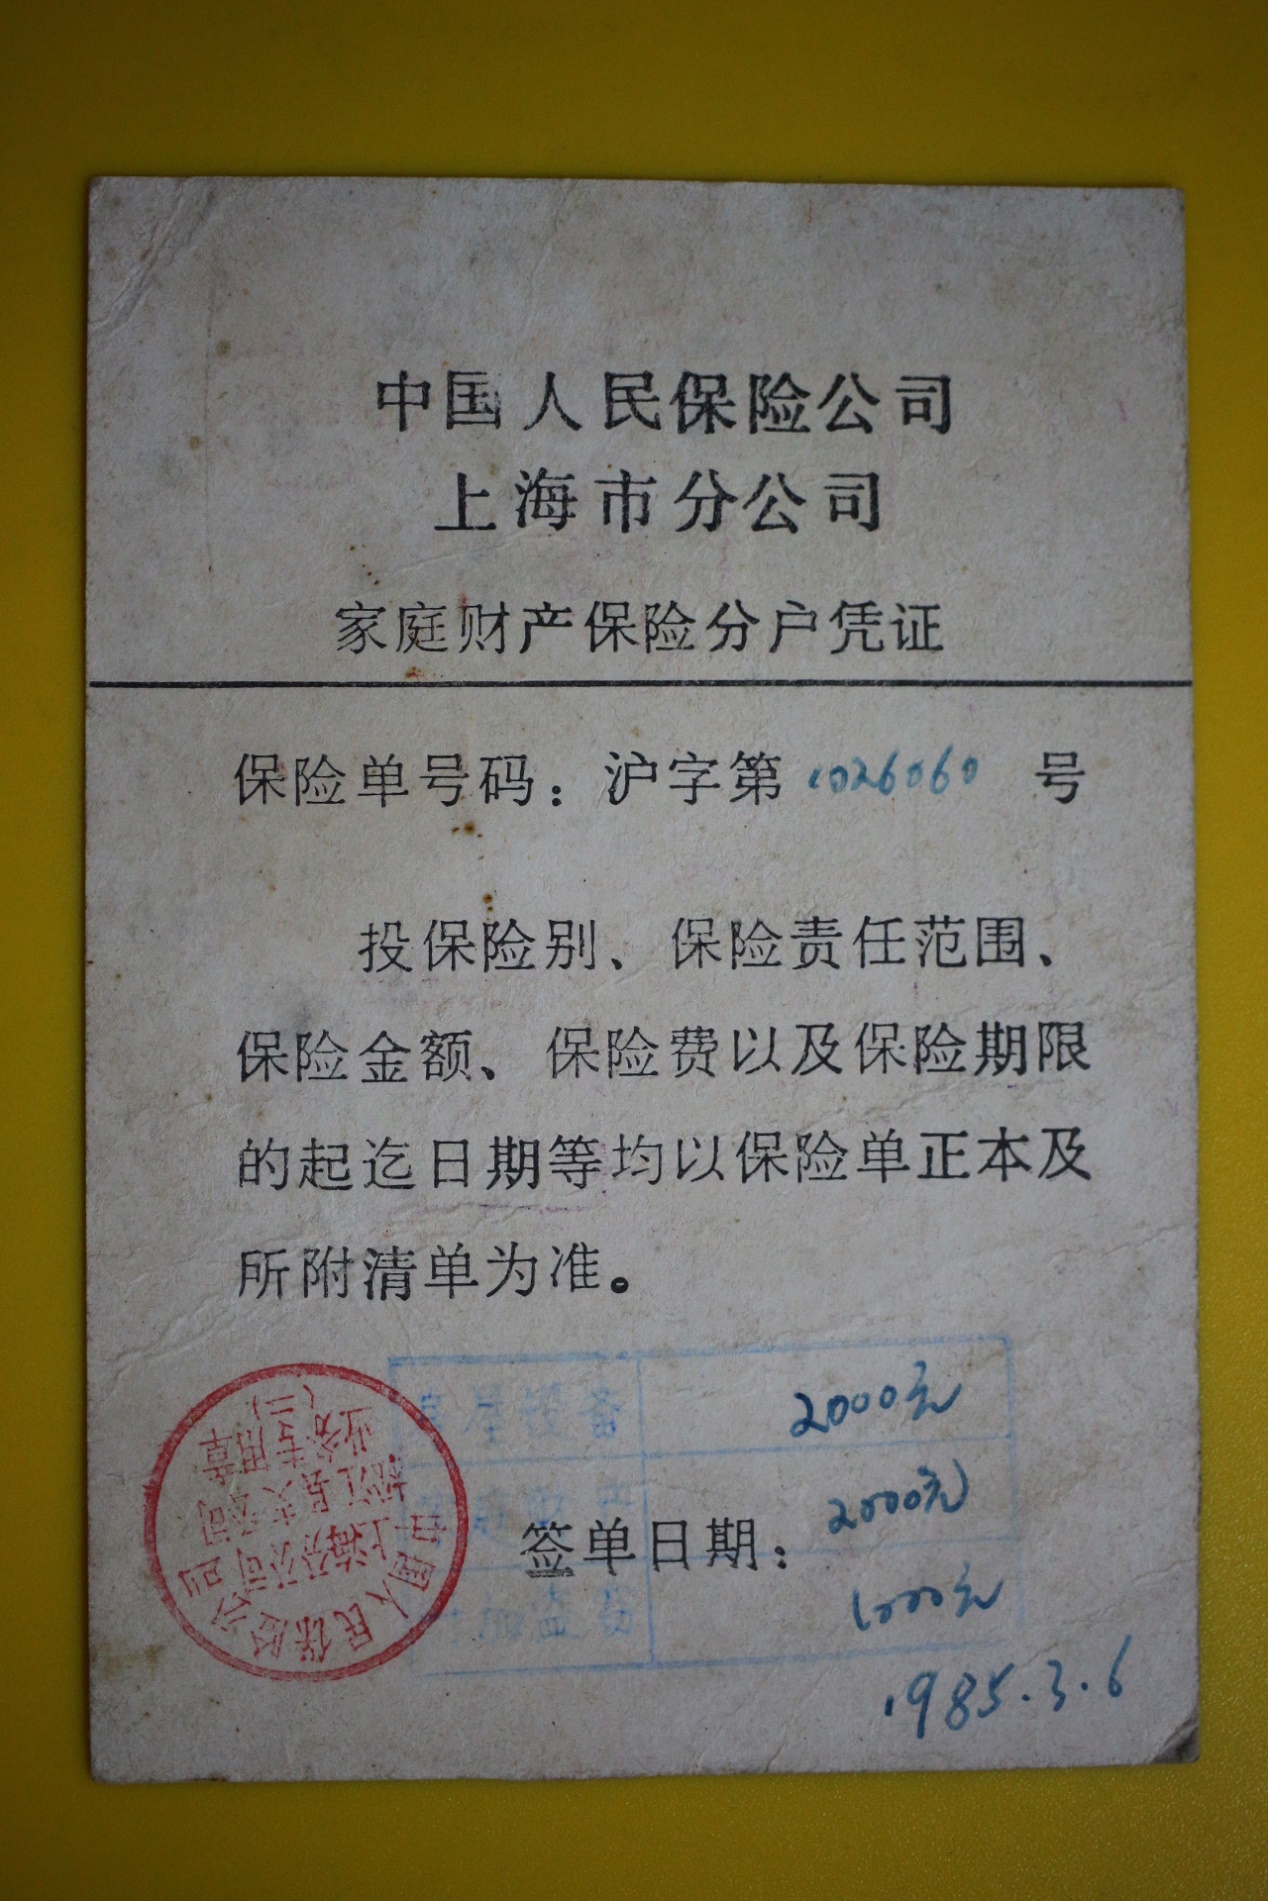 中国人民保险公司
上海市分公司
家庭财产保险分户凭证
保险单号码：沪字第 1026060 号
投保险别、保险责任范围、
保险金额、保险费以及保险期限
的起迄日期等均以保险单正本及
所附清单为准。
设备 2000元
2000元
签单日期：
附加盗 1000元
1985.3.6
中国人民保险公司
上海分公司
松江县支公司
业务专用章
(二)